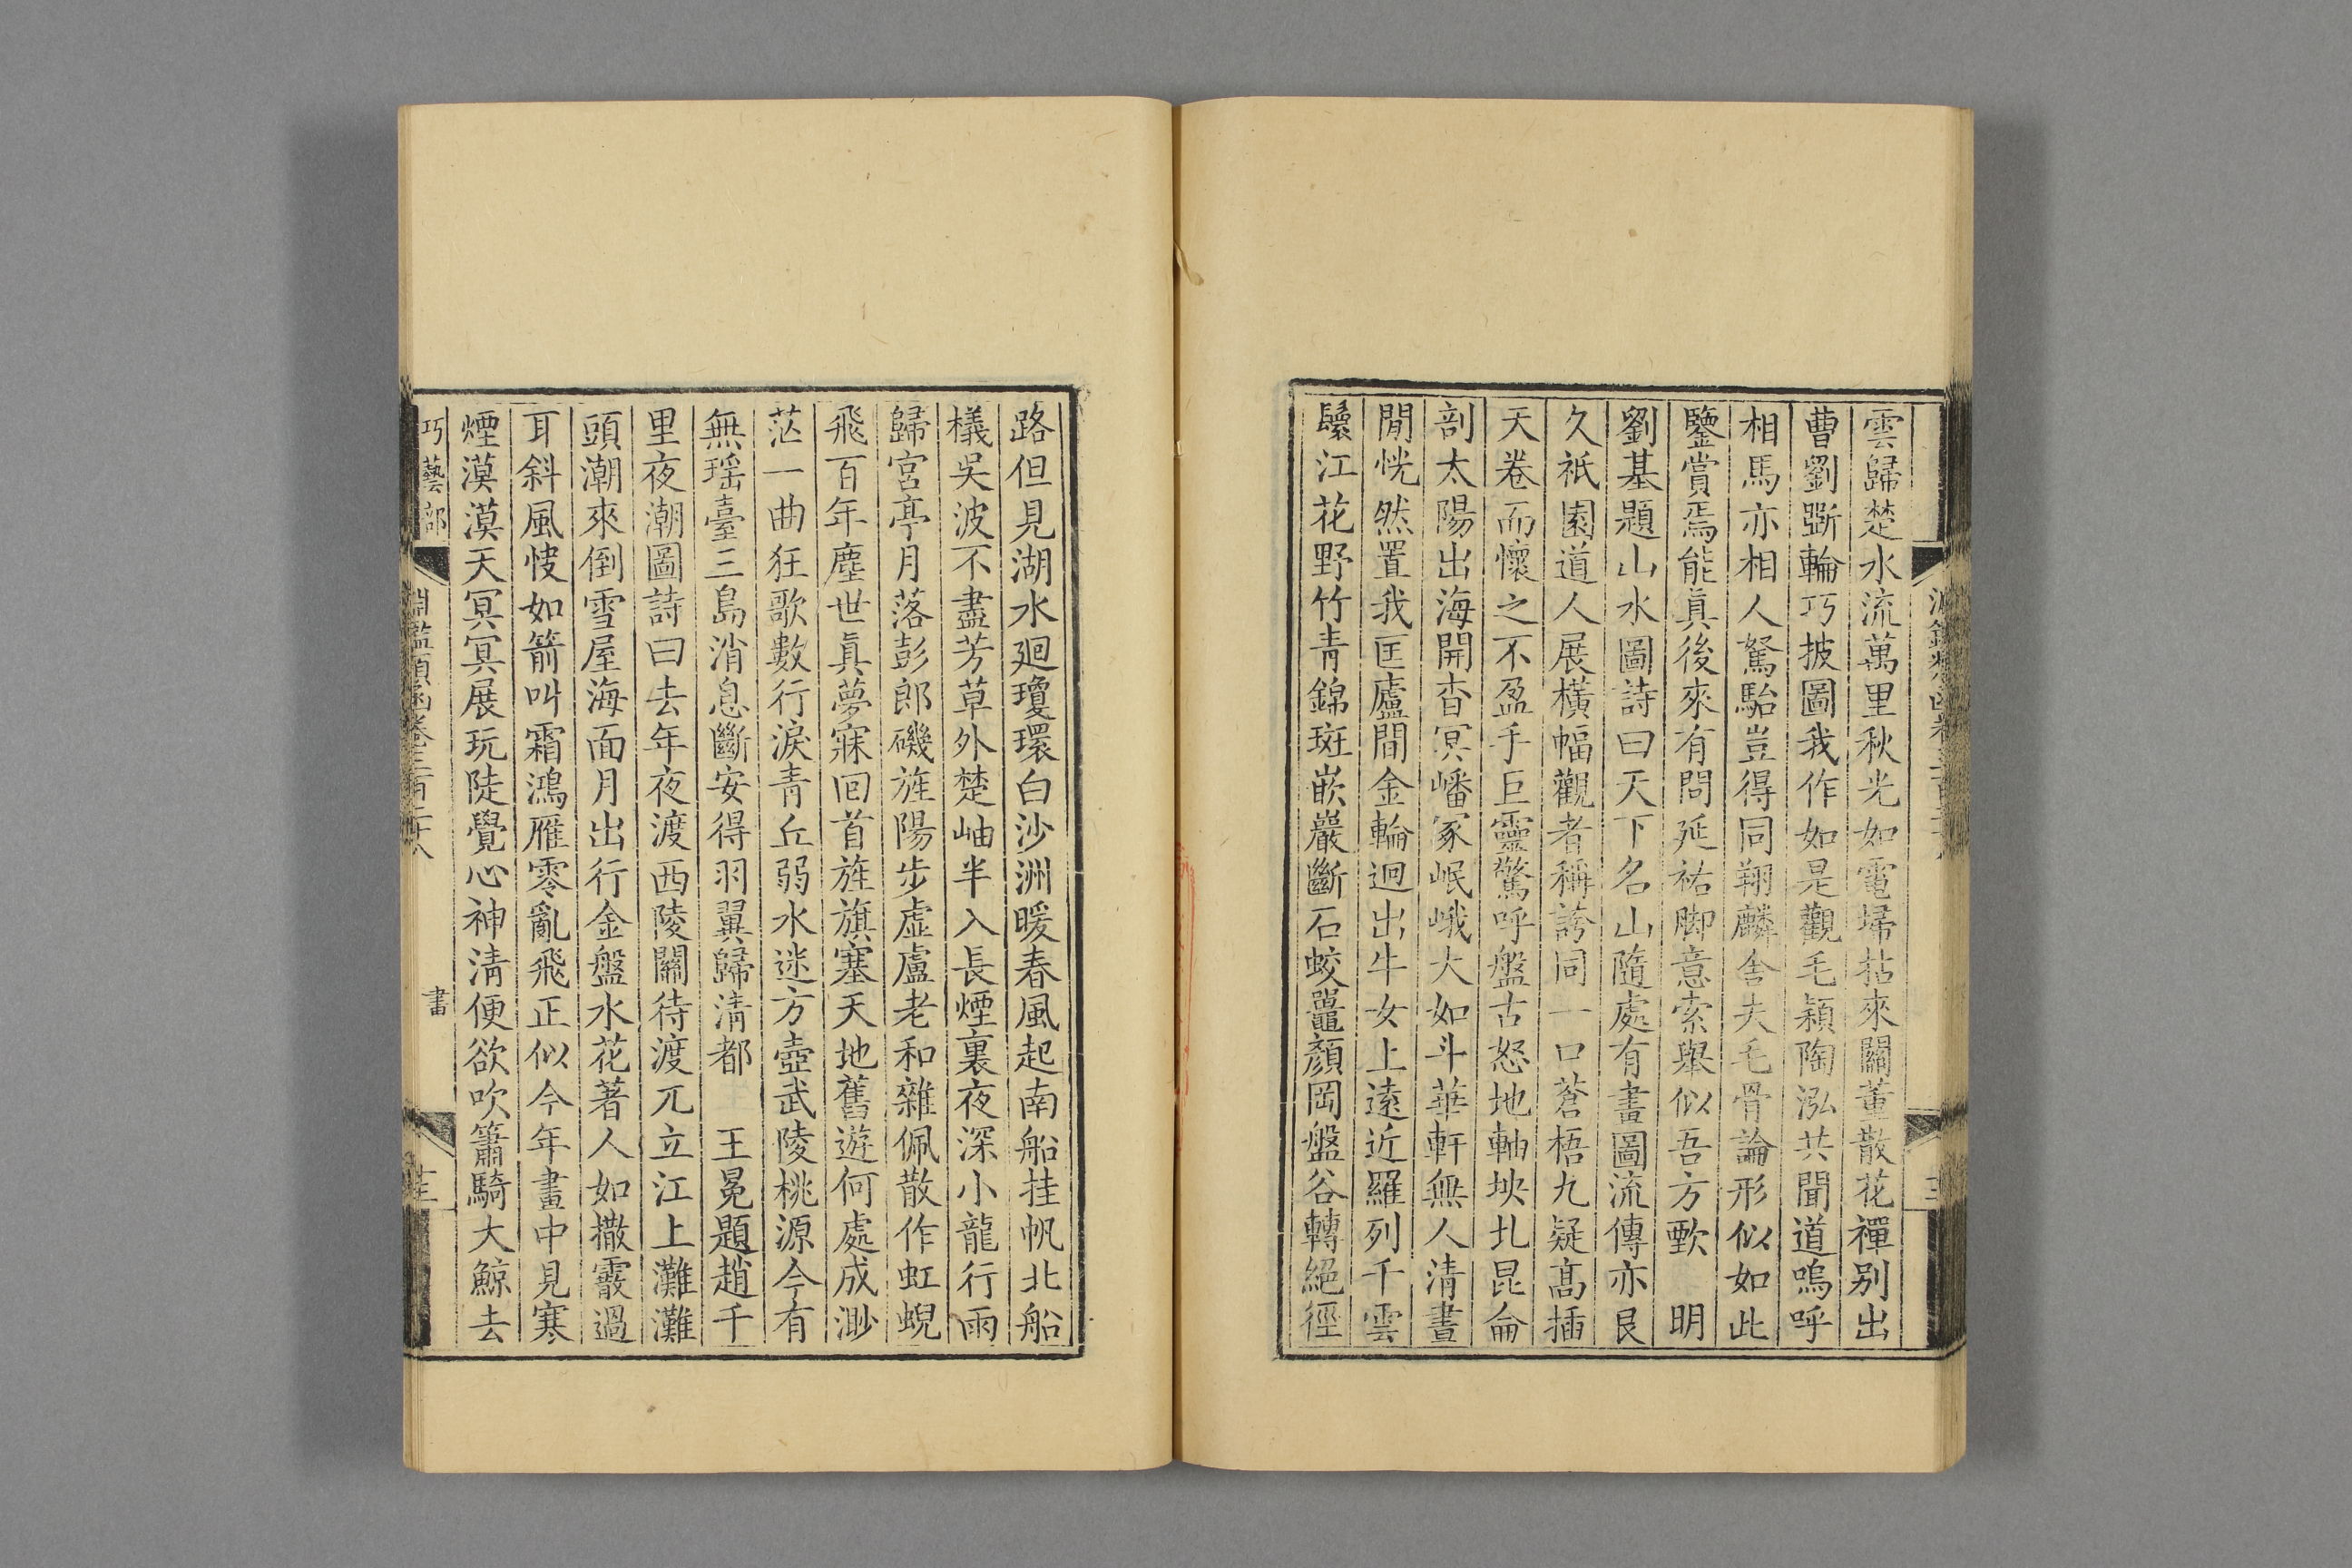 雲歸楚水流萬里秋光如電埽拈來關董散花禪别出
曹劉斲輪巧披圖我作如是觀毛穎陶泓共聞道嗚呼
相馬亦相人駑駘豈得同翔麟舍夫毛骨論形似如此
鑒賞焉能眞後來有問延祐脚意索舉似吾方歅 明
劉基題山水圖詩曰天下名山隨處有畫圖流傳亦良
久祇園道人展橫幅觀者稱誇同一口蒼梧九疑髙插
天卷而懷之不盈手巨靈驚呼盤古怒地軸坱圠昆侖
剖太陽出海開杳冥嶓冢岷峨大如斗華軒無人清晝
閒恍然置我匡廬間金輪迴出牛女上遠近羅列千雲
鬟江花野竹青錦斑嵌巖斷石蛟鼉顔岡盤谷轉絕徑
路但見湖水廻瓊環白沙洲暖春風起南船挂帆北船
檥吳波不盡芳草外楚岫半入長煙裏夜深小龍行雨
歸宮亭月落彭郎磯旌陽步虛盧老和雜佩散作虹蜺
飛百年塵世眞夢寐回首旌旗塞天地舊遊何處成渺
茫一曲狂歌數行淚青丘弱水迷方壺武陵桃源今有
無瑶臺三島消息斷安得羽翼歸清都 王冕題趙千
里夜潮圖詩曰去年夜渡西陵關待渡兀立江上灘灘
頭潮來倒雪屋海面月出行金盤水花著人如撒霰過
耳斜風快如箭叫霜鴻雁零亂飛正似今年畫中見寒
煙漠漠天冥冥展玩陡覺心神清便欲吹簫騎大鯨去
巧藝部 淵鑑類函卷三百二十八 畫